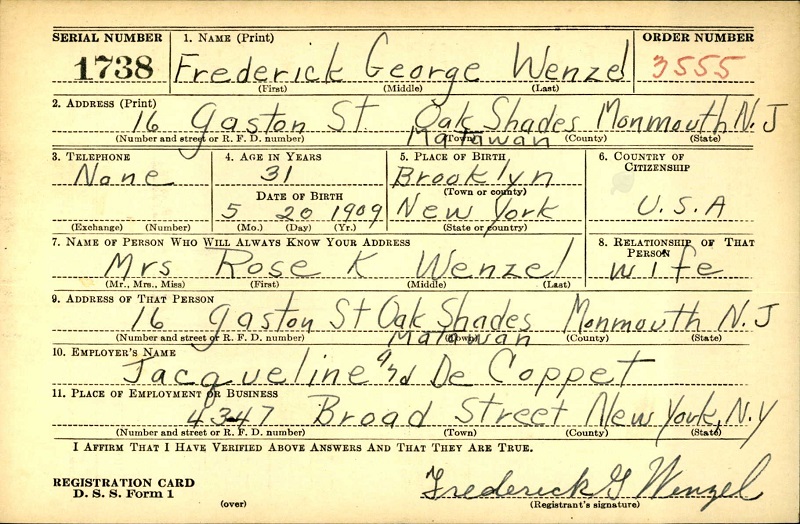 SERIAL NUMBER 1. NAME (Print) ORDER NUMBER
1738 Frederick George Wenzel 3555
(First) (Middle) (Last)
2. ADDRESS (Print)
16 Gaston St Oak Shades Monmouth N.J
(Number and street or R. F. D. number) (Town) (County) (State)
Matawan
3. TELEPHONE 4. AGE IN YEARS 5. PLACE OF BIRTH 6. COUNTRY OF CITIZENSHIP
None 31 Brooklyn
(Town or county)
DATE OF BIRTH
5 20 1909 New York U.S.A
(Exchange) (Number) (Mo.) (Day) (Yr.) (State or country)
7. NAME OF PERSON WHO WILL ALWAYS KNOW YOUR ADDRESS 8. RELATIONSHIP OF THAT PERSON
Mrs Rose K Wenzel wife
(Mr., Mrs., Miss) (First) (Middle) (Last)
9. ADDRESS OF THAT PERSON
16 Gaston St Oak Shades Monmouth N.J
(Number and street or R. F. D. number) (Town) (County) (State)
Matawan
10. EMPLOYER'S NAME
Jacqueline and De Coppet
11. PLACE OF EMPLOYMENT OR BUSINESS
43-47 Broad Street New York, N.Y
(Number and street or R. F. D. number) (Town) (County) (State)
I AFFIRM THAT I HAVE VERIFIED ABOVE ANSWERS AND THAT THEY ARE TRUE.
REGISTRATION CARD
D. S. S. Form 1
(over)
Frederick G Wenzel
(Registrant's signature)